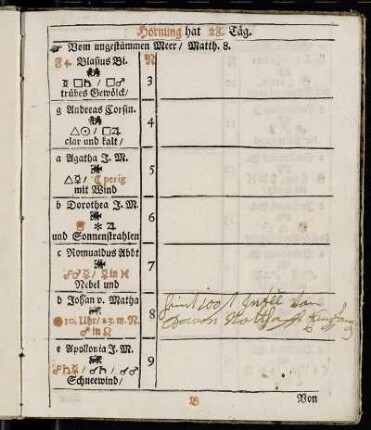 Hornung hat 28. Täg.
☛ Vom ungestümmen Meer/ Matth. 8.
F 4. Blasius Bi. N
☿ □♄ / □♂ 3
trübes Gewölck/
g Andreas Corsin.
△☉ / □♃ 4
clar und kalt/
a Agatha J. M.
△☿/ ☾ perig 5
mit Wind
b Dorothea J. M.
✶ ♃ 6
und Sonnenstrahlen
c Romualdus Abbt
☿ in ♓ 7
Nebel und
d Johan v. Matha
10. Uhr/ 25. m. N. 8
♂ in ♌
e Apollonia J. M.
9
Schneewind/
B Von